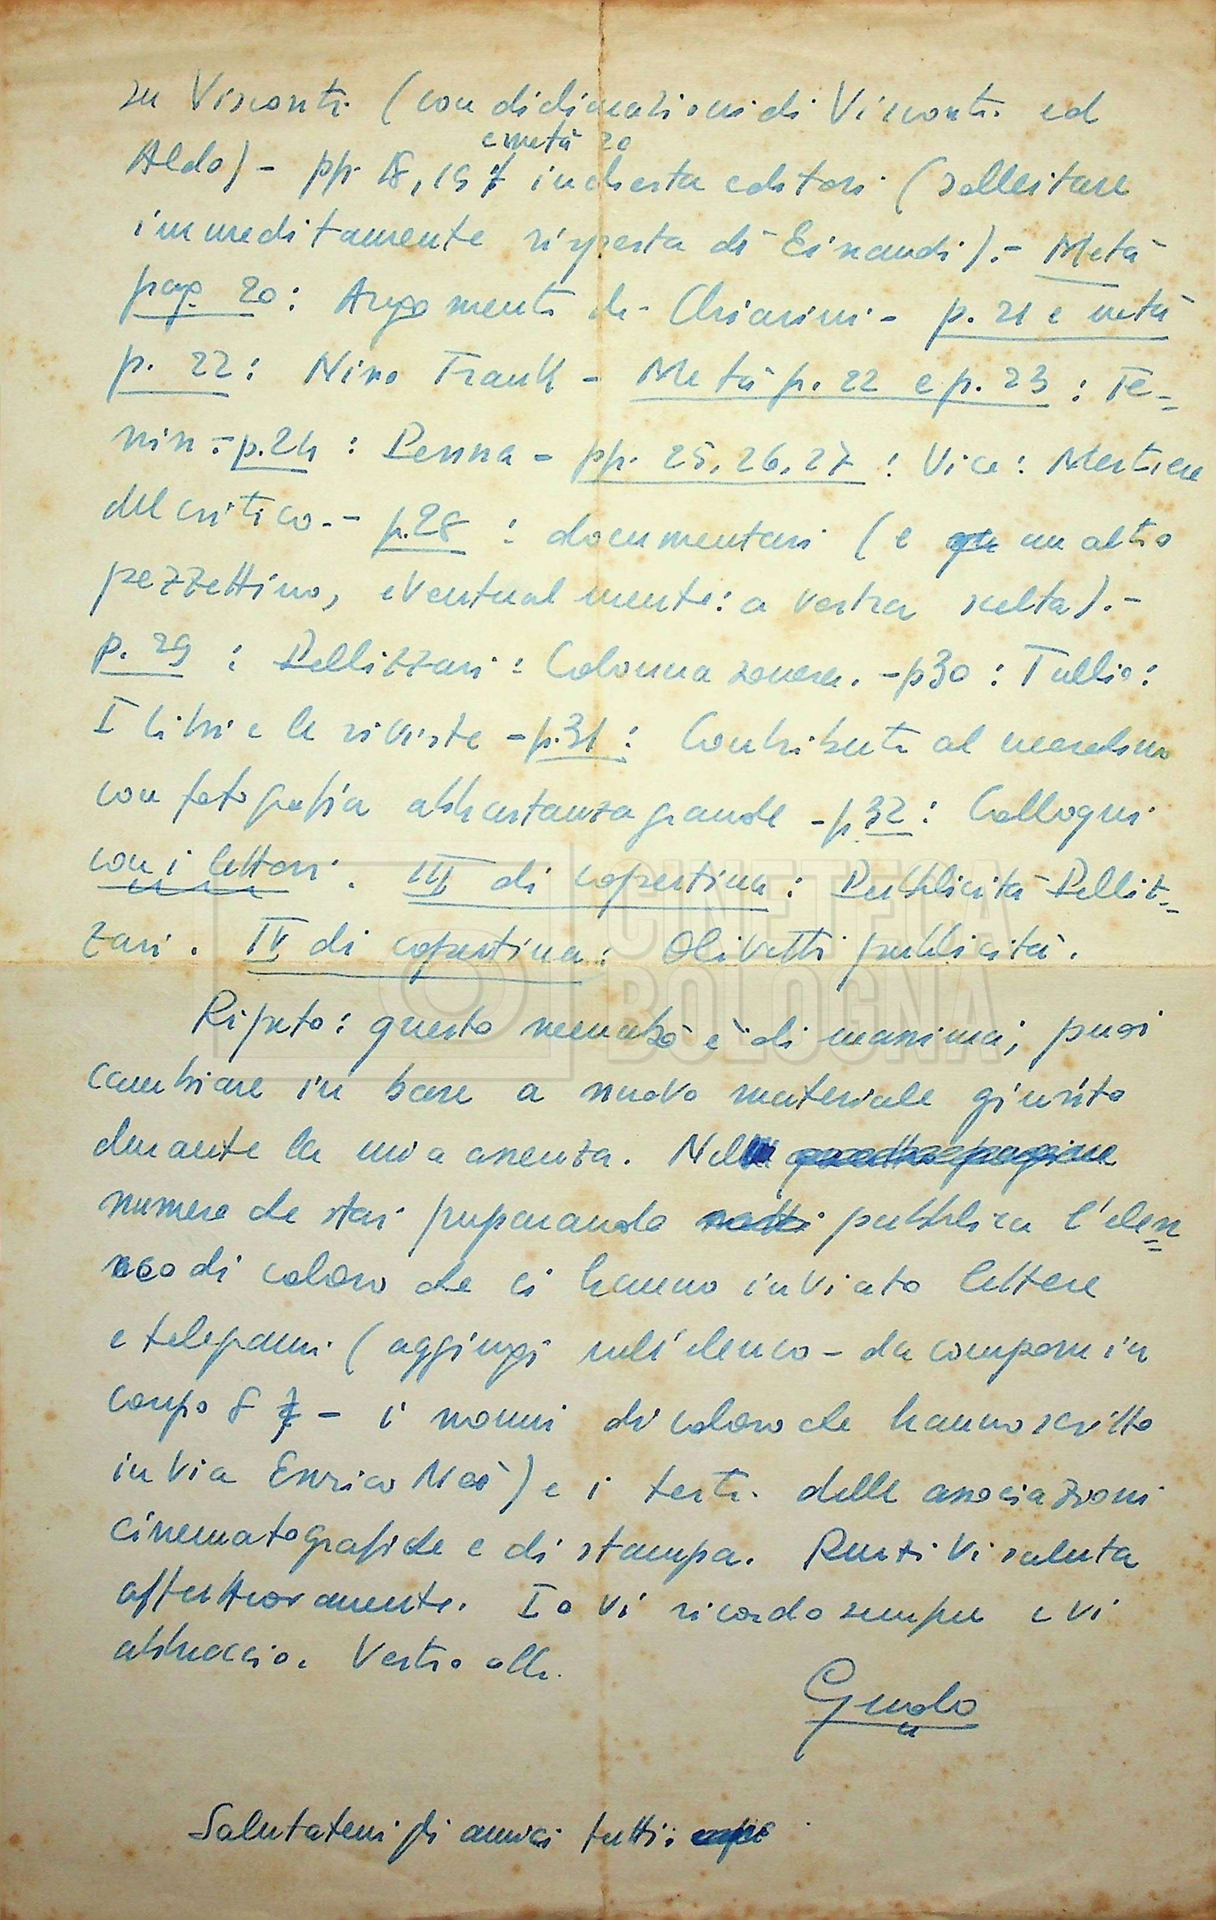 su Visconti (con dichiarazioni di Visconti ed
e metà 20
Aldo) - pp. 18, 19 inchiesta editori (sollecitare
immeditamente risposta di Einaudi). - Metà
pag. 20: Argomenti di Chiarini - p. 21 e metà
p. 22: Nino Frank - Metà p. 22 e p. 23: Te=
nin. - p. 24: Penna - pp. 25, 26, 27: Vice: Mestiere
del critico. - p. 28: documentari (e un altro
pezzettino, eventualmente: a vostra scelta). -
p. 29: Pellizzari: Colonna sonora. - p 30: Tullio:
I libri e le riviste - p. 31: Contributi al neorealismo
con fotografia abbastanza grande - p. 32: Colloqui
con i lettori. III di copertina: Pubblicità Pelliz=
zari. IV di copertina: Olivetti pubblicità.
Ripeto: questo menabò è di massima; puoi
cambiare in base a nuovo materiale giunto
durante la mia assenza. Nel
numero che stai preparando pubblica l'elen=
co di coloro che ci hanno inviato lettere
e telegrammi (aggiungi nell'elenco - da comporre in
corpo 8 - i nomi di coloro che hanno scritto
in Via Enrico Noë) e i testi delle associazioni
cinematografiche e di stampa. Renzi vi saluta
affettuosamente. Io vi ricordo sempre e vi
abbraccio. Vostro aff.
Guido
Salutatemi gli amici tutti:
CINETECA
BOLOGNA